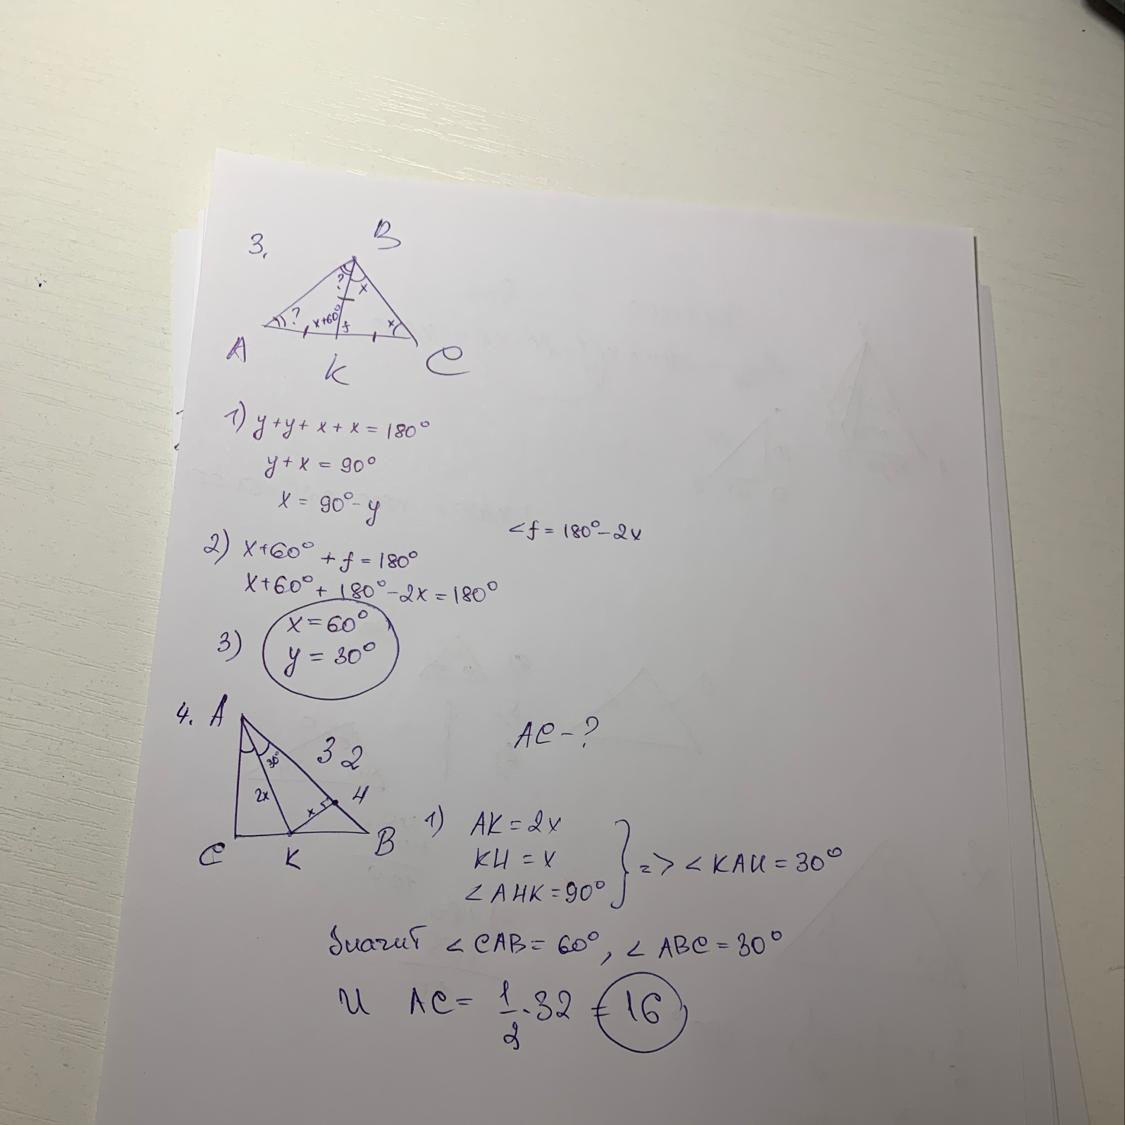 3.
B
? x
? x+60° f x
A K C
1) y+y+x+x=180°
y+x=90°
x=90°-y
<f=180°-2x
2) x+60°+f=180°
x+60°+180°-2x=180°
3) x=60°
y=30°
4. A
AC-?
32
30°
2x x H
C K B
1) AK=2x
KH=x
<AHK=90°
=> <KAH=30°
Значит <CAB=60°, <ABC=30°
И AC=1/2·32=16